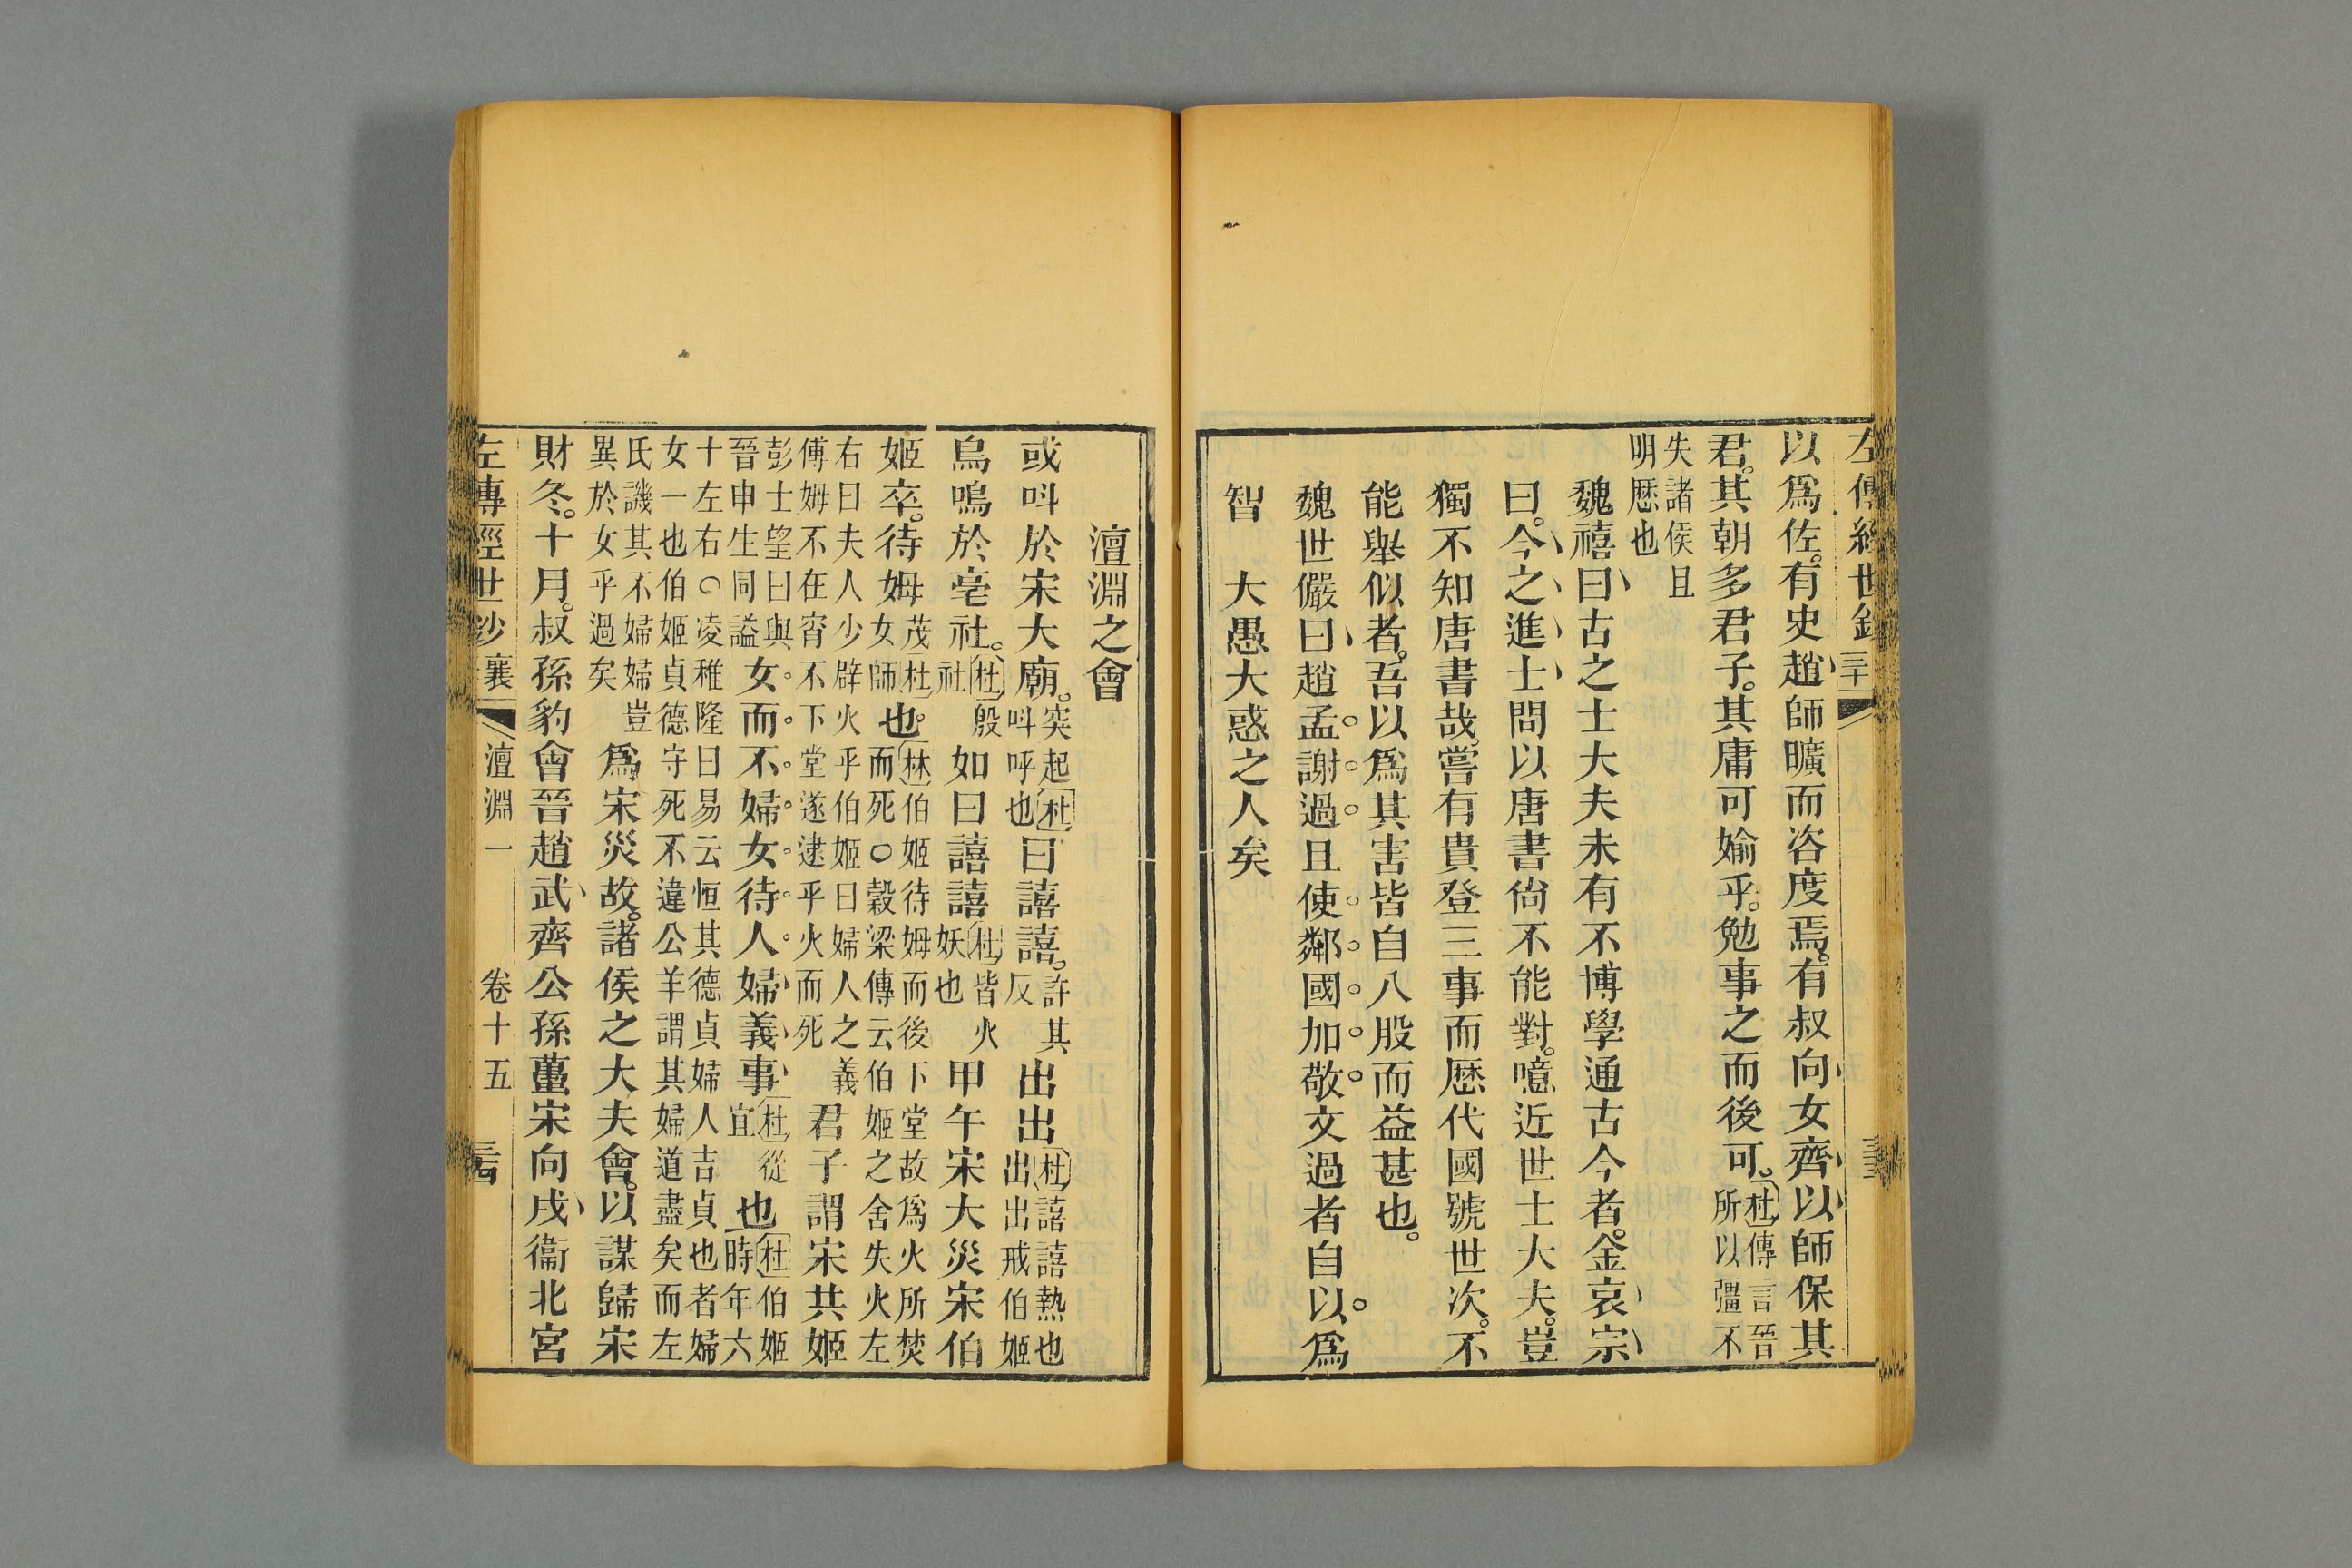 左傳經世鈔
以爲佐。有史趙師曠而咨度焉。有叔向女齊以師保其
君。其朝多君子。其庸可媮乎。勉事之而後可。杜傳言晉
所以彊不
失諸侯且
明歷也
魏禧曰古之士大夫未有不博學通古今者。金哀宗
曰。今之進士問以唐書尙不能對。噫近世士大夫。豈
獨不知唐書哉。嘗有貴登三事而歷代國號世次。不
能舉似者。吾以爲其害皆自八股而益甚也。
魏世儼曰趙孟謝過且使鄰國加敬文過者自以爲
智　大愚大惑之人矣
澶淵之會
或呌於宋大廟。突起杜
呌呼也
曰譆譆。許其
反
出出杜譆譆熱也
出出戒伯姬
鳥鳴於亳社。杜殷
社
如曰譆譆杜皆火
妖也
甲午宋大災宋伯
姬卒。待姆茂杜
女師
也。林伯姬待姆而後下堂故爲火所焚
而死○穀梁傳云伯姬之舍失火左
右曰夫人少辟火乎伯姬曰婦人之義
傅姆不在宵不下堂遂逮乎火而死
君子謂宋共姬
彭士望曰與
晉申生同謚
女。而。不。婦。女。待。人。婦義事杜從
宜
也杜伯姬
時年六
十左右○凌稚隆曰易云恒其德貞婦人吉貞也者婦
女一也伯姬貞德守死不違公羊謂其婦道盡矣而左
氏譏其不婦婦豈
異於女乎過矣
爲宋災故。諸侯之大夫會。以謀歸宋
財冬。十月。叔孫豹會晉趙武齊公孫蠆宋向戌衞北宮
左傳經世鈔 襄 澶淵一 卷十五